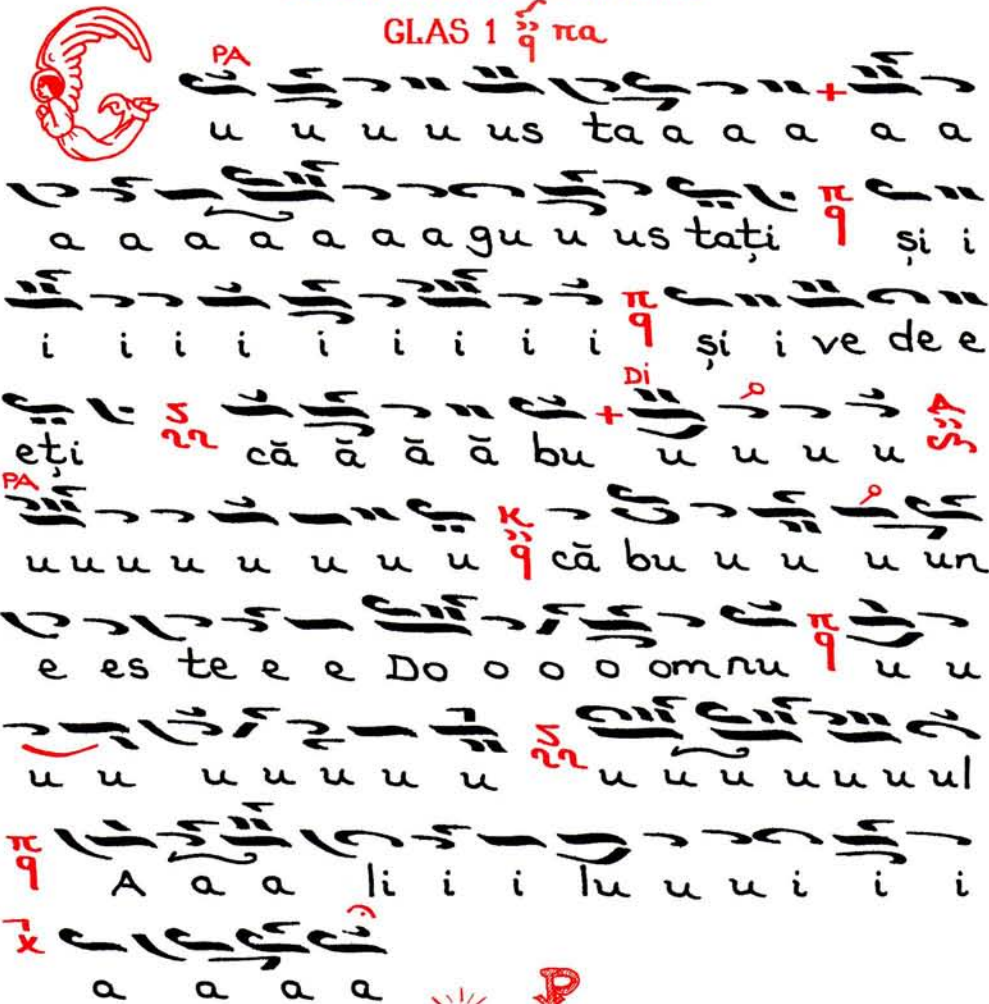 GLAS 1 πα
PA
G u u u u us ta a a a a a
a a a a a a a gu u us tați π q și i
i i i i i i i i i π q și i ve de e
eți că ă ă ă bu Di u u u u
PA
u u u u u u u u u K q că bu u u u un
e es te e e Do o o o om nu π q u u
u u u u u u u u u u u u u ul
π q A a a li i i lu u u i i i
a a a a